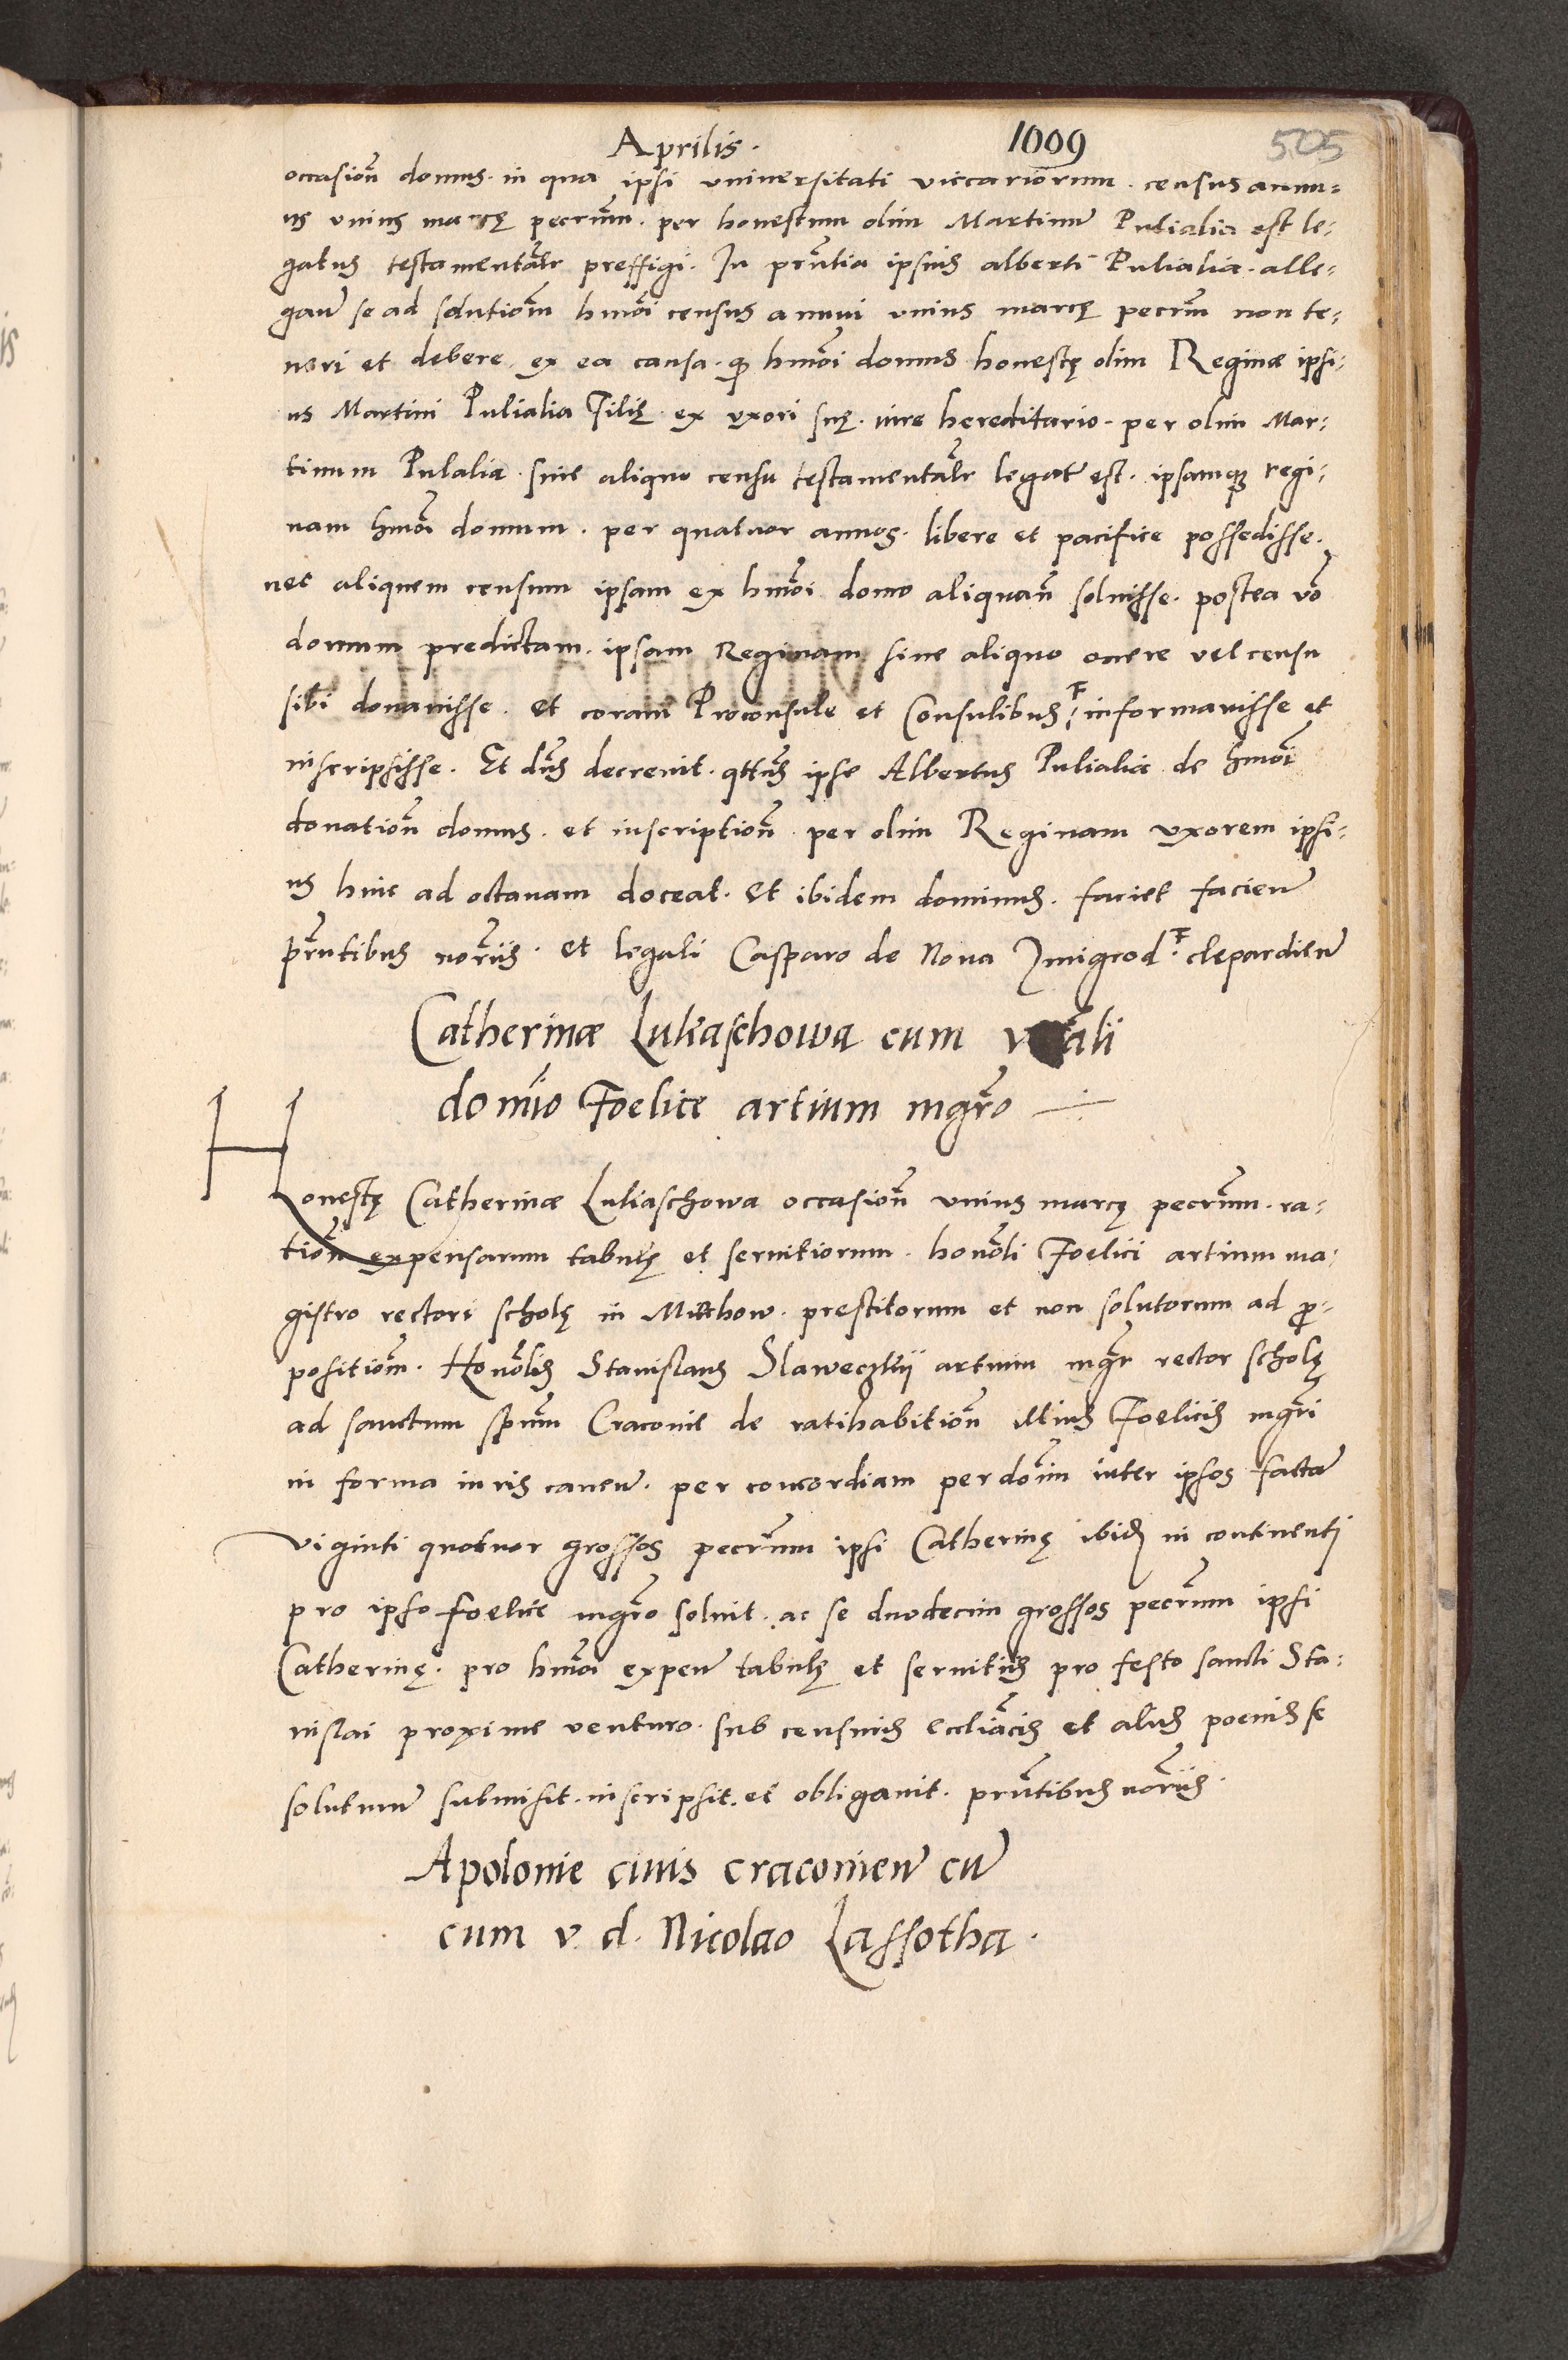 Aprilis. 1009 505
occasion̄ domus. in qua ipsi vniuersitati viccariorum. census annu=
us vnius marcę pecn̄um. per honestum olim Martinū Pulialia est le=
gatus testamentālr preffigi. In pn̄tia ipsius alberti Pulialia. alle=
gaū se ad solution̄m hmōi census annui vnius marcę pecn̄m non te=
neri et debere. ex ea causa. q hmōi domus honestę olim Reginæ ipsi=
us Martini Pulialia filię ex vxori suę. iure hereditario. per olim Mar=
tinum Pulalia. sine aliquo censu testamentālr legata est. ipsamq regi=
nam hmōi domum. per quatuor annos. libere et pacifice possedisse.
nec aliquem censum ipsam ex hmōi domo aliquan̄ soluisse. postea vō
domum predictam. ipsam Reginam sine aliquo onere vel censu
sibi donauisse. et coram Proconsule et Consulibus F informauisse et
inscripsisse. Et dn̄s decreuit. qtn̄s ipse Albertus Pulialia de hmōi
donation̄ domus. et inscription̄. per olim Reginam vxorem ipsi=
us hinc ad octauam doceat. Et ibidem dominus. faciet facienū
pn̄tibus nor̄iis. et legali Casparo de Noua Zmigrod F clepardieñ
Catherinæ Lukaschowa cum v
domīo Foelice artium mgrō
Honestę Catherinæ Luliaschowa occasion̄ vnius marcę pecn̄um. ra=
tion̄ expensarum tabulę et seruitiorum. honōli Foelici artium ma=
gistro rectori scholę in Miechow. prestitorum et non solutorum ad p=
position̄m. Honōlis Stanislaus Slaweczkii artium mgr̄ rector scholę
ad sanctum spūm Cracouie de ratihabition̄ illius Foelicis mgri
in forma iuris caueñ. per concordiam per dōim inter ipsos factā
viginti quatuor grossos pecn̄um ipsi Catherinę ibid in continenti
pro ipso foelice mgrō soluit. ac se duodecim grossos pecn̄um ipsi
Catherinę. pro hmōi expeñ tabulę et seruitiis pro festo sancti Sta=
nislai proxime venturo. sub censuris eccliācis et aliis poenis se
soluturū submisit. inscripsit. et obligauit. pn̄tibus nor̄iis.
Apolonie ciuis cracouieñ cū
cum v. d. Nicolao Lassotha.